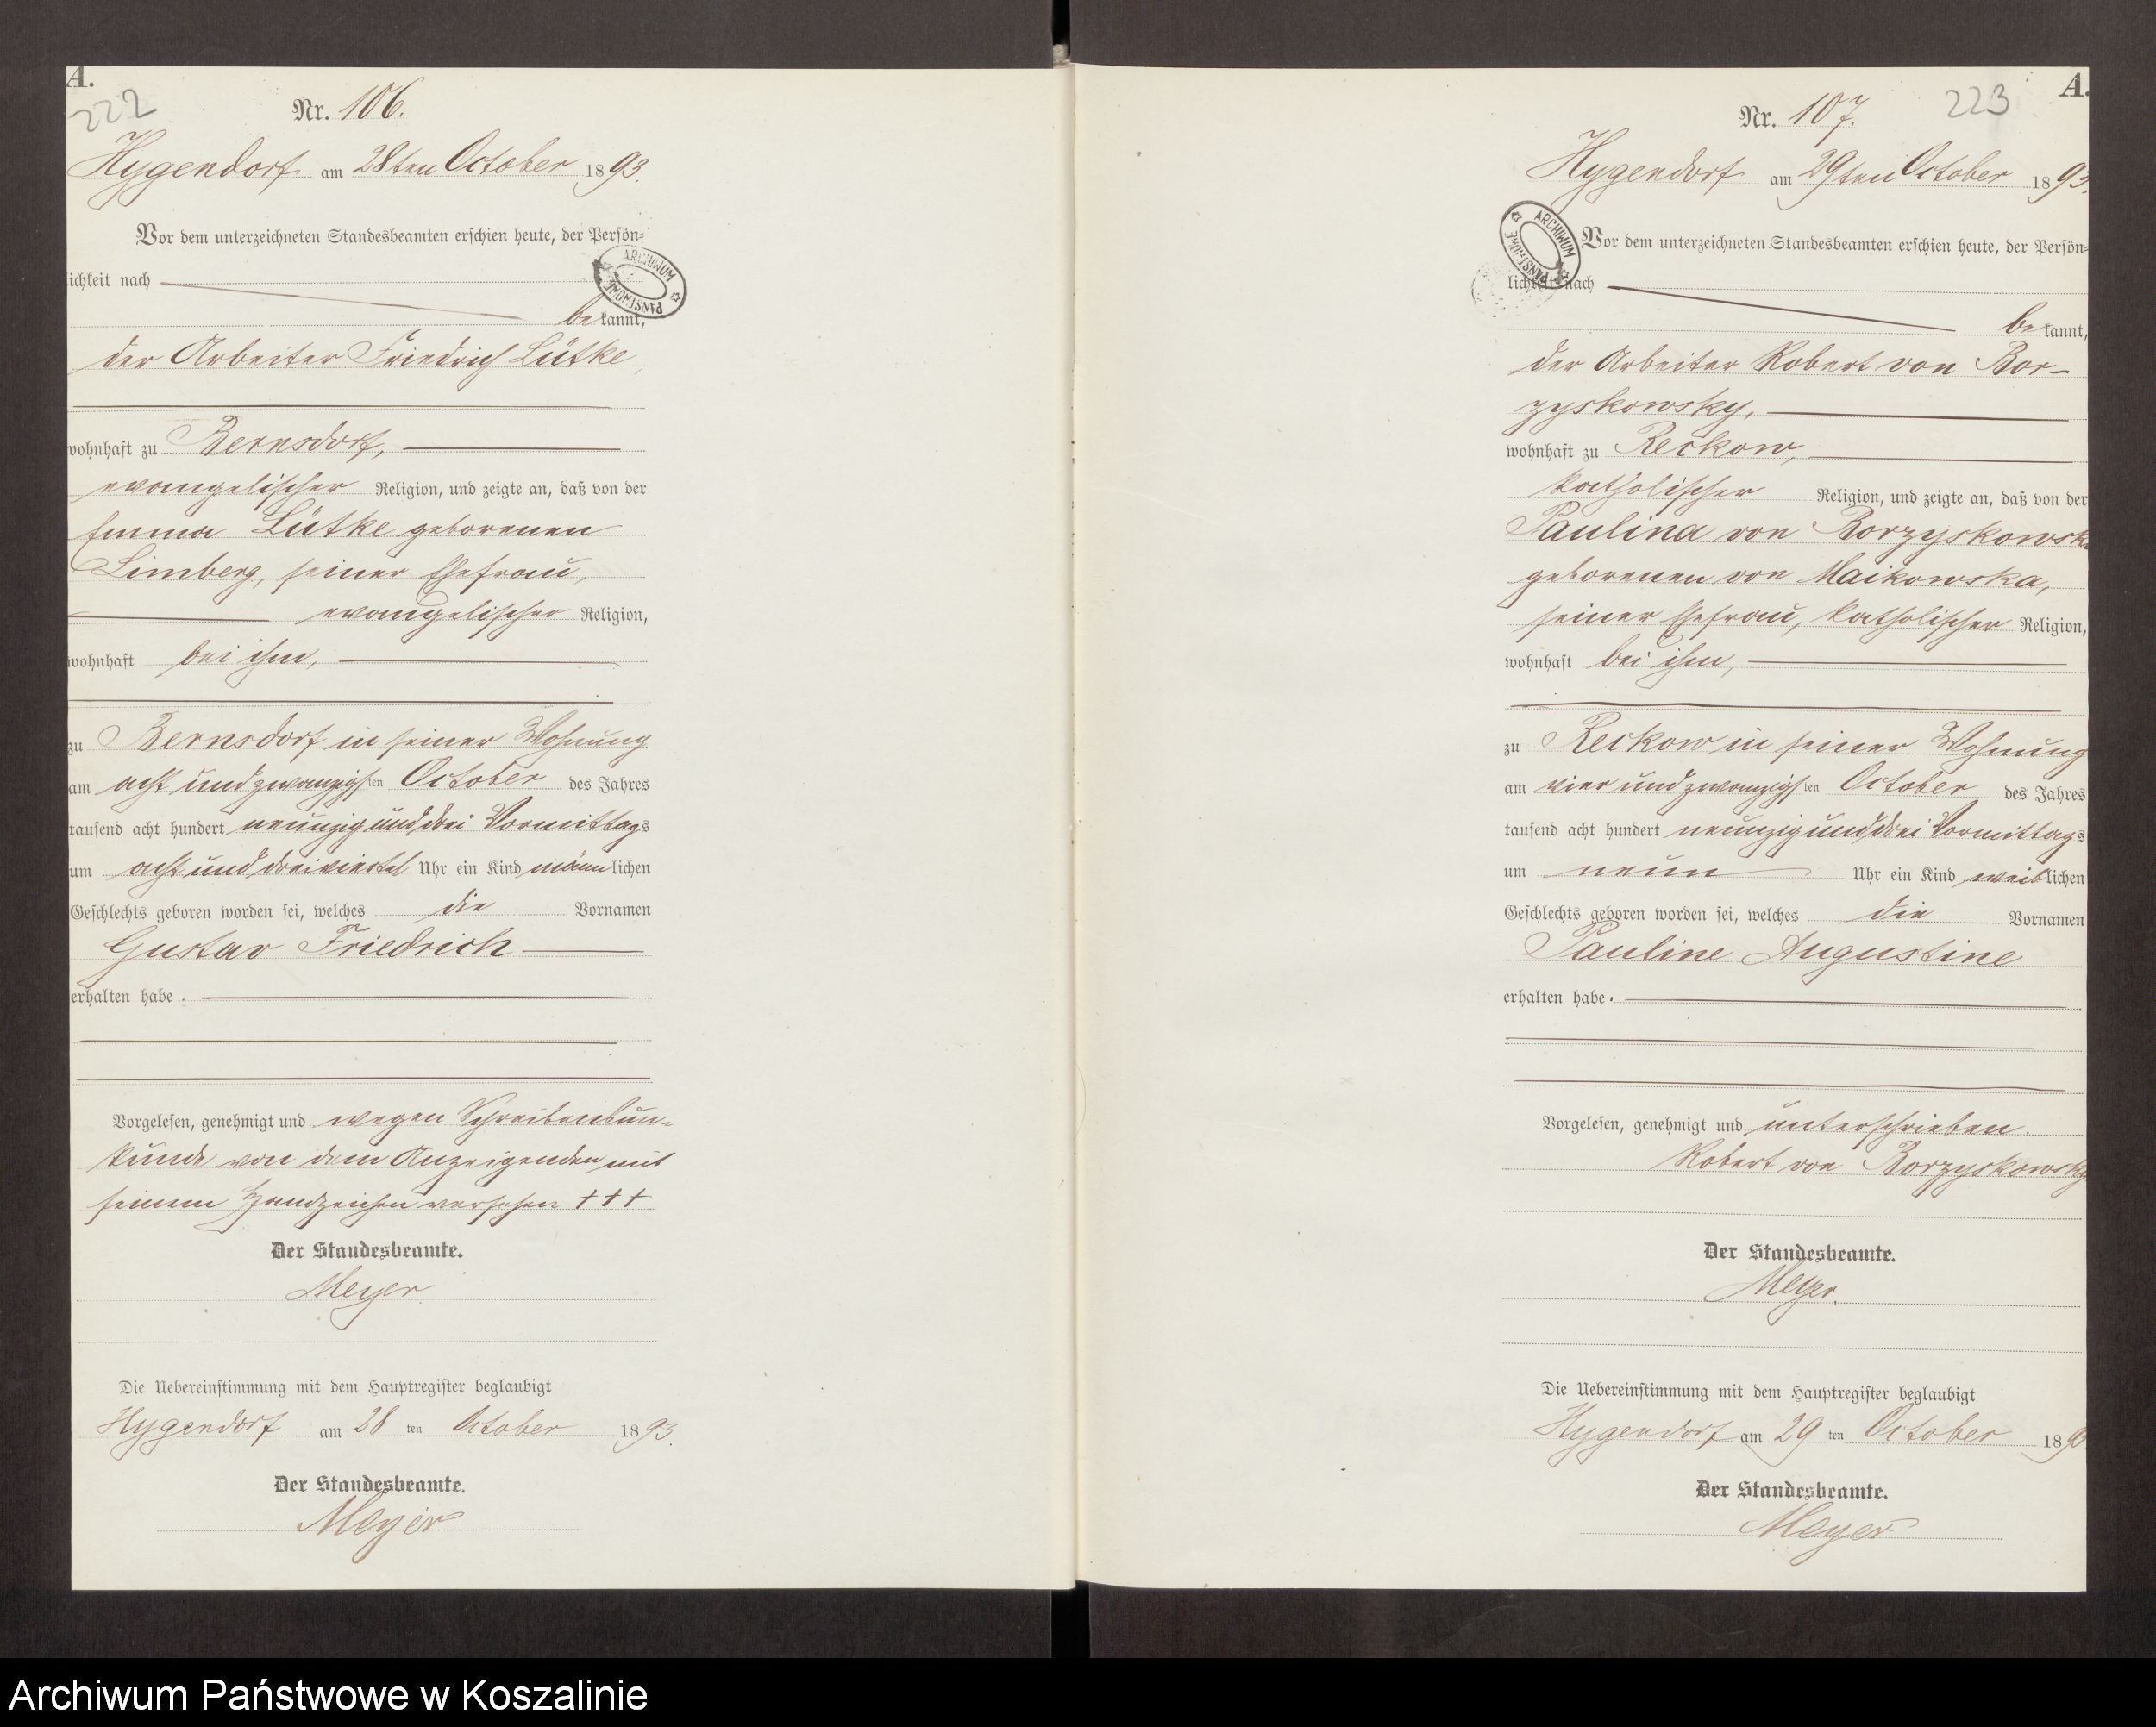 A.
222
Nr. 106.
Hygendorf am 28ten October 1893.
Vor dem unterzeichneten Standesbeamten erschien heute, der Persön-
lichkeit nach
bekannt,
der Arbeiter Friedrich Lütke,
wohnhaft zu Bernsdorf,
evangelischer Religion, und zeigte an, daß von der
Emma Lütke geborenen
Limberg, seiner Ehefrau,
evangelischer Religion,
wohnhaft bei ihm,
zu Bernsdorf in seiner Wohnung
am acht und zwanzigsten October des Jahres
tausend acht hundert neunzig und drei Vormittags
um acht und dreiviertel Uhr ein Kind männlichen
Geschlechts geboren worden sei, welches die Vornamen
Gustav Friedrich
erhalten habe.
Vorgelesen, genehmigt und wegen Schreibensun-
kunde von dem Anzeigenden mit
seinem Handzeichen versehen +++
Der Standesbeamte.
Meyer
Die Uebereinstimmung mit dem Hauptregister beglaubigt
Hygendorf am 28 ten October 1893.
Der Standesbeamte.
Meyer
ARCHIWUM PAŃSTWOWE
A.
223
Nr. 107.
Hygendorf am 29ten October 1893.
ARCHIWUM PAŃSTWOWE
Vor dem unterzeichneten Standesbeamten erschien heute, der Persön-
lichkeit nach
bekannt,
der Arbeiter Robert von Bor-
zyskowsky,
wohnhaft zu Reckow,
katholischer Religion, und zeigte an, daß von der
Paulina von Borzyskowsk
geborenen von Maikowska,
seiner Ehefrau, katholischer Religion,
wohnhaft bei ihm,
zu Reckow in seiner Wohnung
am vier und zwanzigsten October des Jahres
tausend acht hundert neunzig und drei Vormittags
um neun Uhr ein Kind weiblichen
Geschlechts geboren worden sei, welches die Vornamen
Pauline Augustine
erhalten habe.
Vorgelesen, genehmigt und unterschrieben.
Robert von Borzyskowsky
Der Standesbeamte.
Meyer.
Die Uebereinstimmung mit dem Hauptregister beglaubigt
Hygendorf am 29 ten October 189
Der Standesbeamte.
Meyer
Archiwum Państwowe w Koszalinie